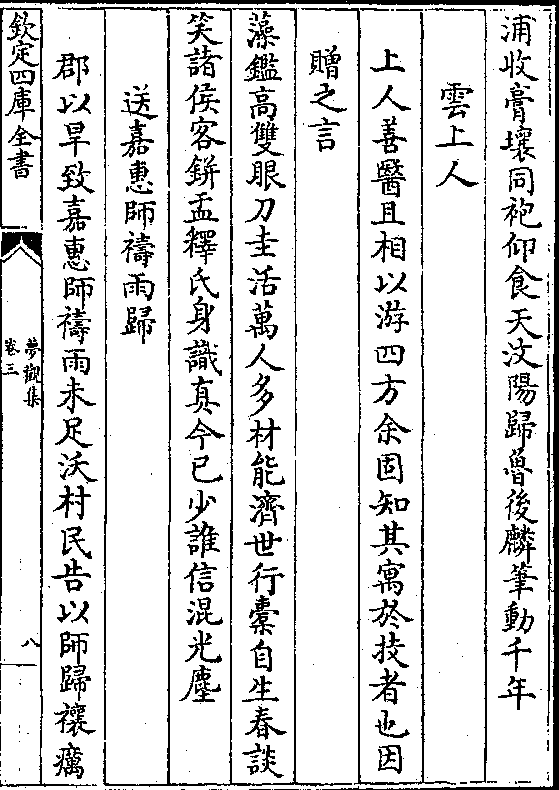 浦收膏壤同袍仰食天汶陽歸魯後麟筆動千年
雲上人
上人善醫且相以游四方余固知其寓於技者也因
贈之言
藻鑑高雙眼刀圭活萬人多材能濟世行橐自生春談
笑諸侯客鉼盂釋氏身識真今已少誰信混光塵
送嘉惠師禱雨歸
郡以旱致嘉惠師禱雨未足沃村民告以師歸禳癘
欽定四庫全書
夢觀集
卷三
八